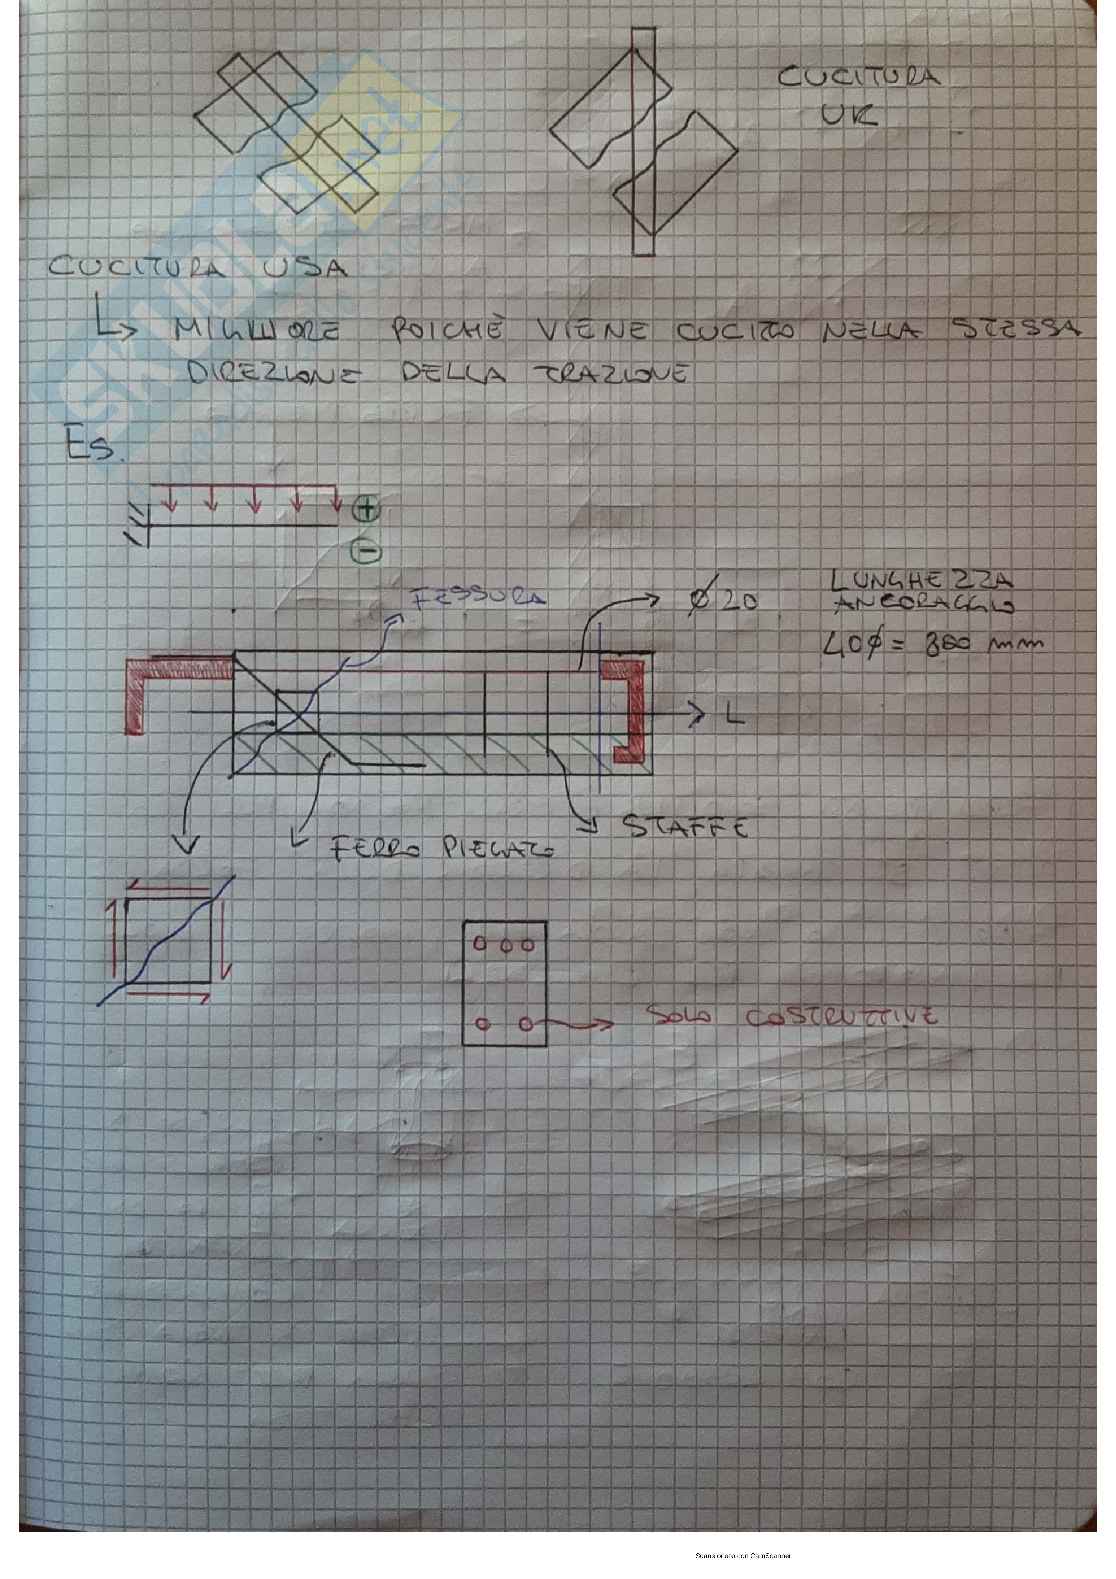 CUCITURA
UK
CUCITURA USA
↳ MIGLIORE POICHÈ VIENE CUCITO NELLA STESSA
DIREZIONE DELLA TRAZIONE
Es.
+
-
FESSURA
⌀ 20
LUNGHEZZA
ANCORAGGIO
40⌀ = 800 mm
L
STAFFE
FERRO PIEGATO
SOLO COSTRUTTIVE